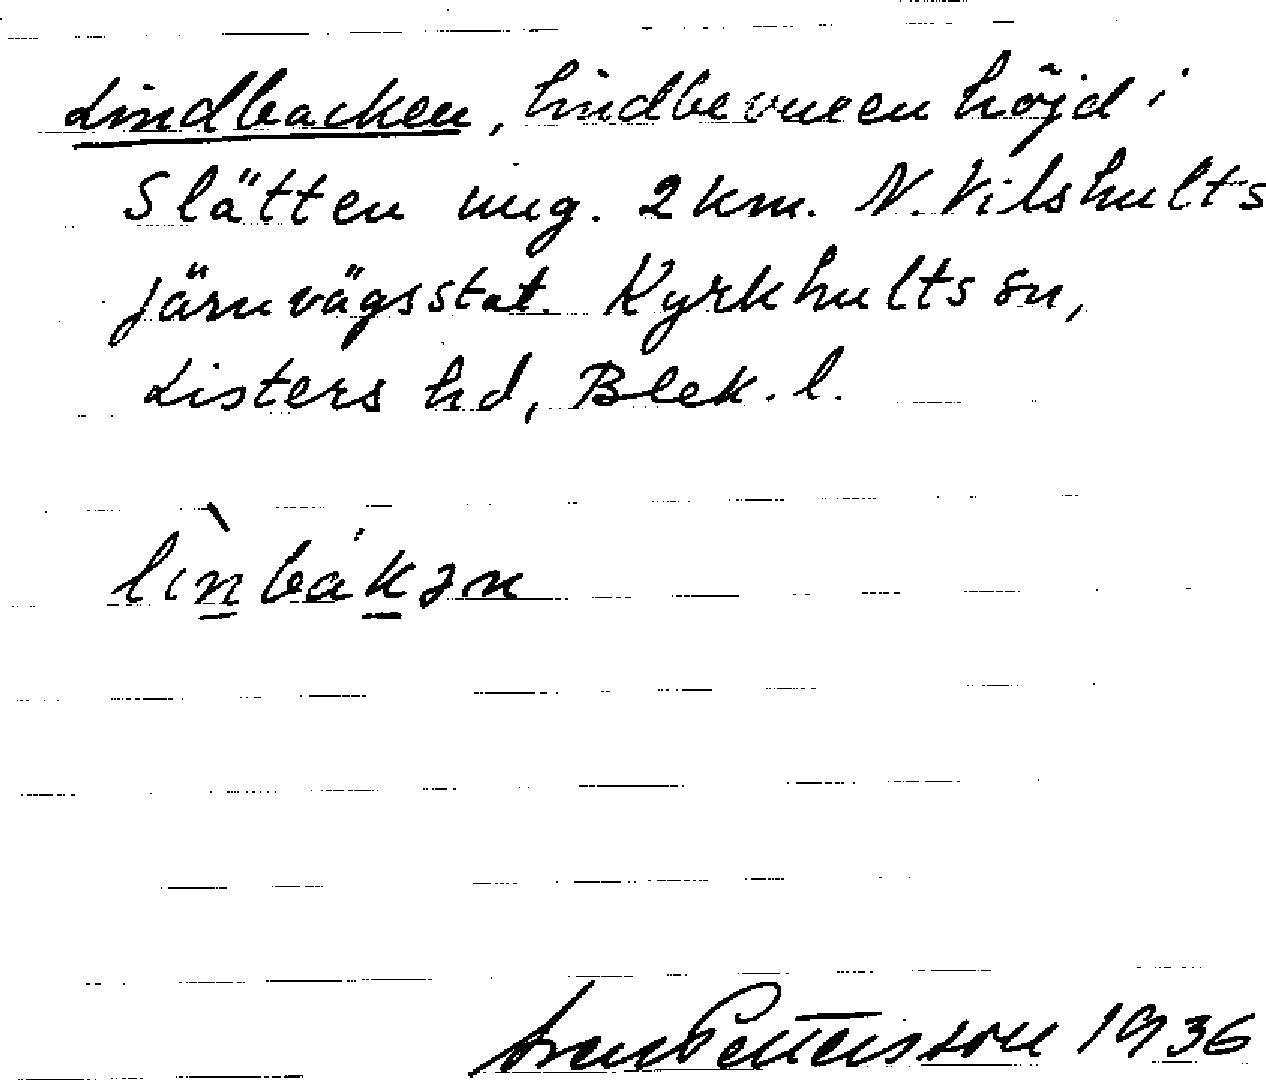 Lindbacken, lindbevuxen höjd i
Slätten ung. 2 km. N. Vilshults
järnvägsstat. Kyrkhults sn,
Listers hd, Blek. l.
lìnbákən
Sven Pettersson 1936